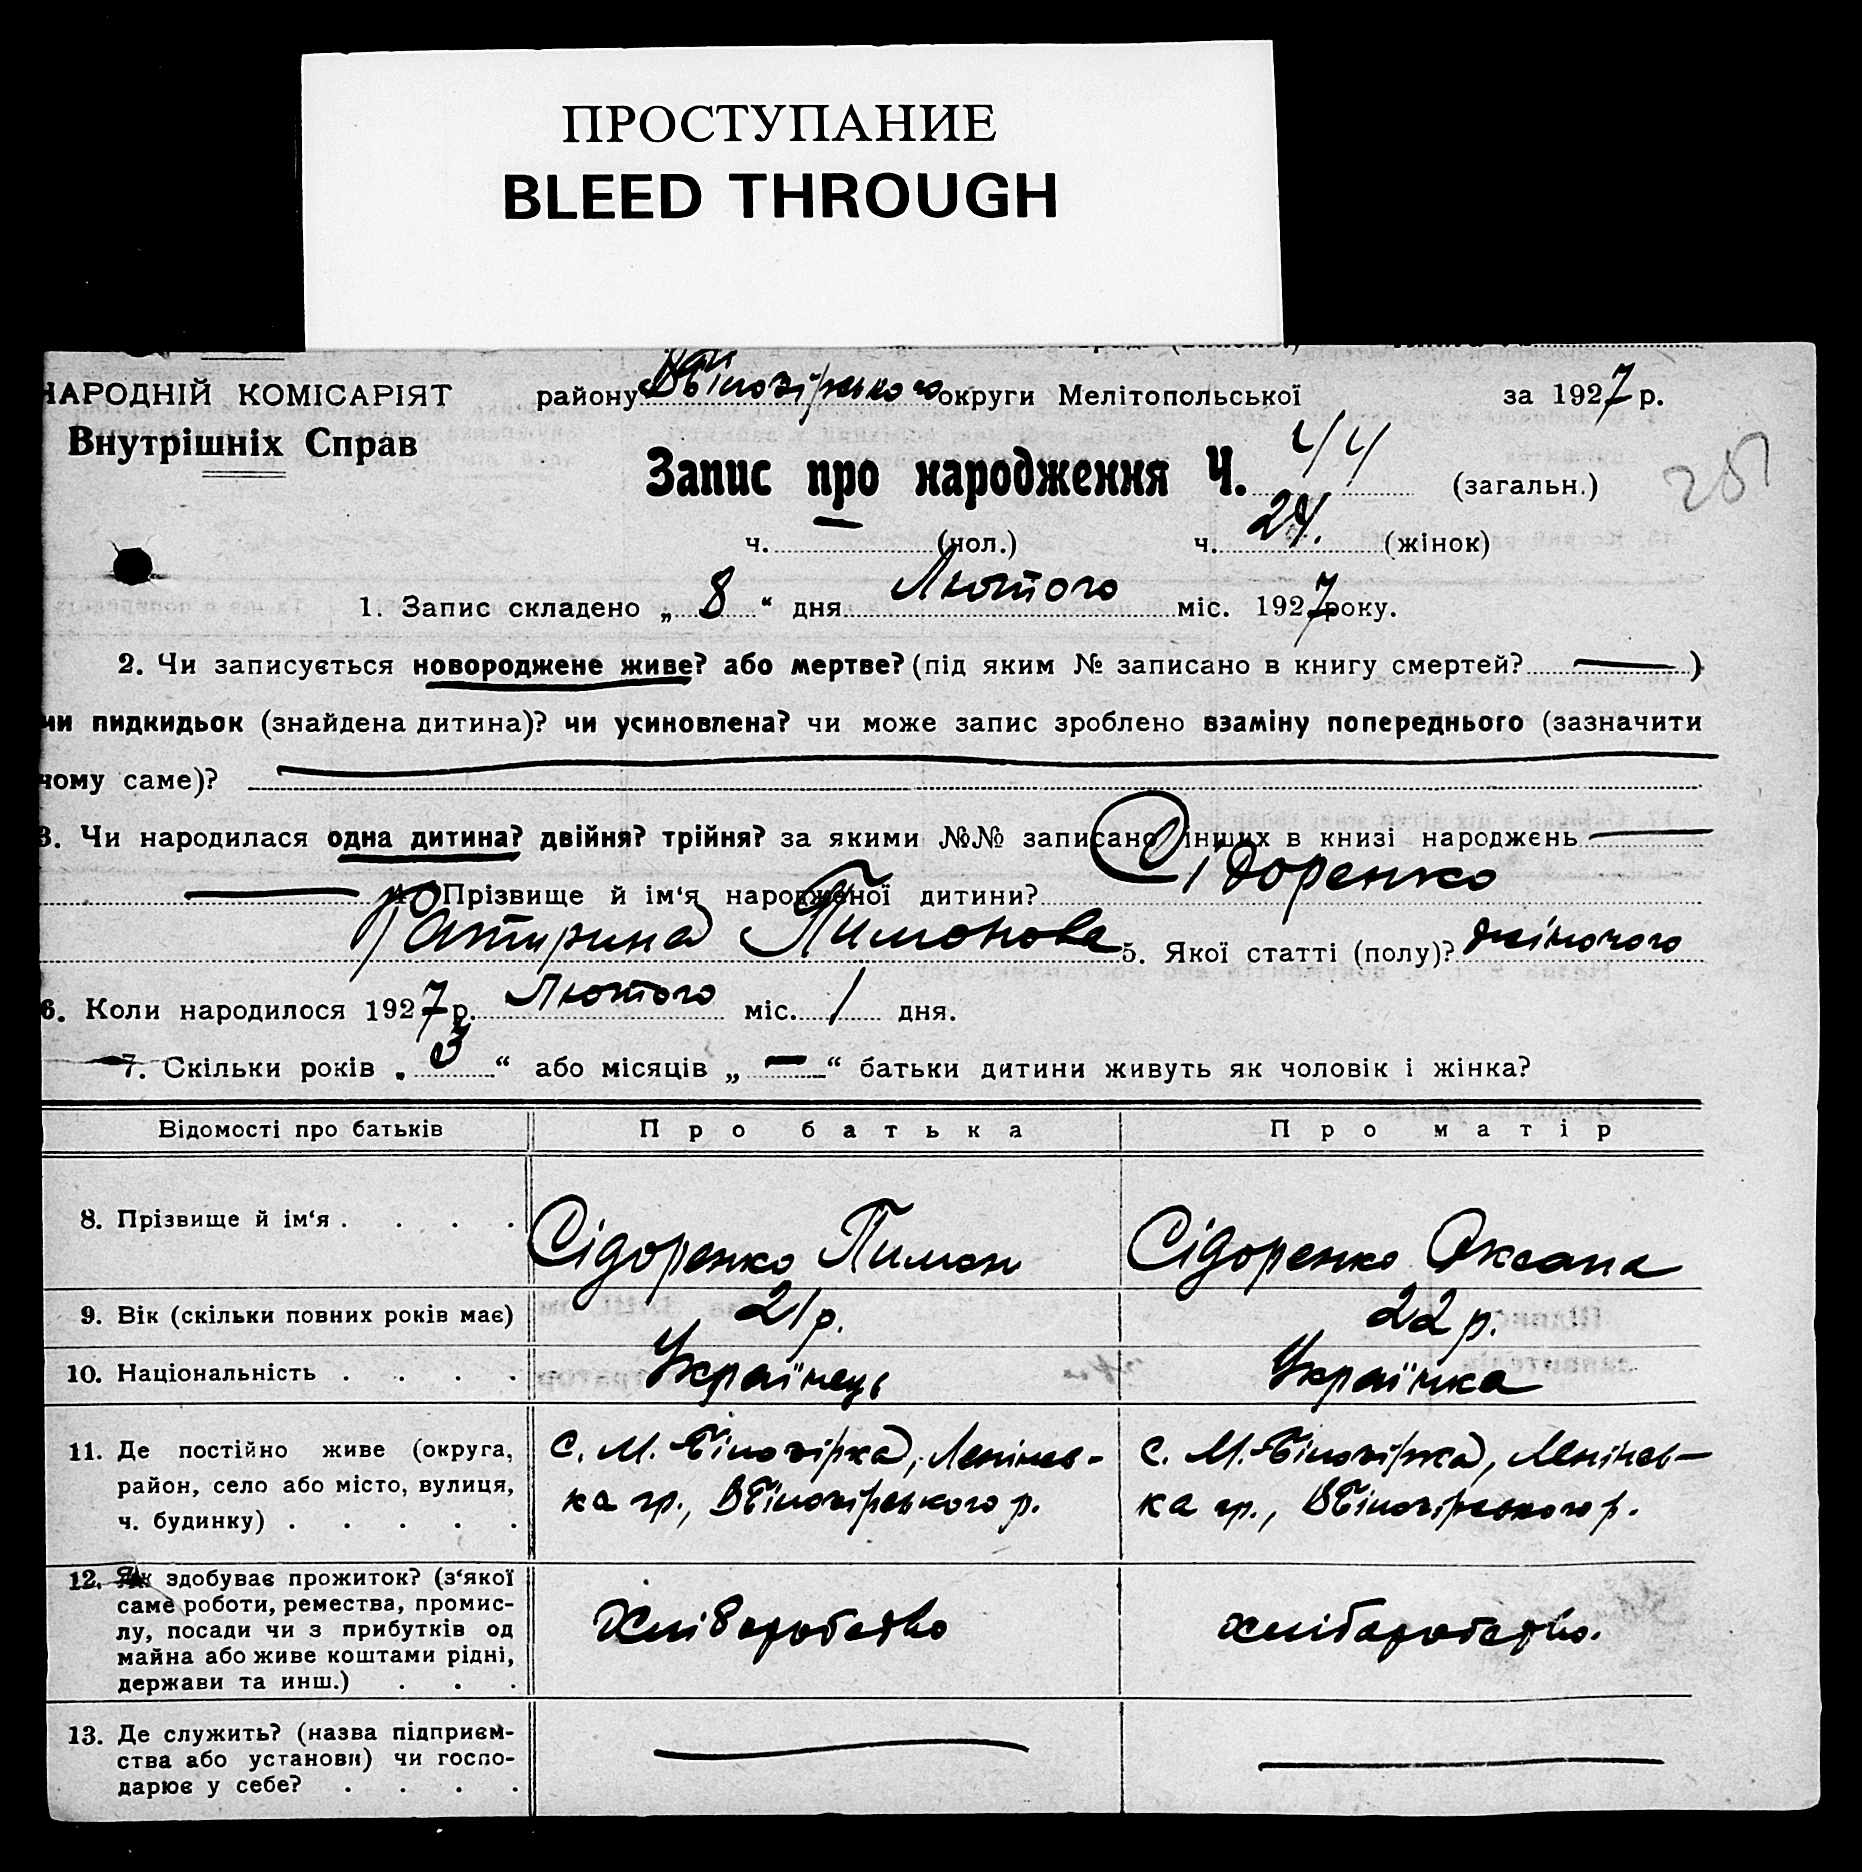 ПРОСТУПАНИЕ
BLEED THROUGH
НАРОДНІЙ КОМІСАРІЯТ
Внутрішніх Справ
району ВБілозірського округи Мелітопольської за 1927 р.
Запис про народження Ч. 44 (загальн.)
251
ч. — (чол.) ч. 24. (жінок)
1. Запис складено „8“ дня Лютого міс. 1927 року.
2. Чи записується новороджене живе? або мертве? (під яким № записано в книгу смертей? —)
чи пидкидьок (знайдена дитина)? чи усиновлена? чи може запис зроблено взаміну попереднього (зазначити
чому саме)? —
3. Чи народилася одна дитина? двійня? трійня? за якими №№ записано інших в книзі народжень —
— 4. Прізвище й ім‘я народженої дитини? Сідоренко
Катирина Пимонова 5. Якої статті (полу)? жіночого
6. Коли народилося 1927 р. Лютого міс. 1 дня.
7. Скільки років „3“ або місяців „—“ батьки дитини живуть як чоловік і жінка?
Відомості про батьків Про батька Про матір
8. Прізвище й ім‘я . . . . Сідоренко Пимон Сідоренко Оксана
9. Вік (скільки повних років має) 21 р. 22 р.
10. Національність . . . . Українець Українка
11. Де постійно живе (округа, с. М. Білозірка, Ленінсь- с. М. Білозірка, Ленінсь-
район, село або місто, вулиця, ка гр., ВБілозірського р. ка гр., ВБілозірського р.
ч. будинку) . . . . .
12. Як здобуває прожиток? (з‘якої
саме роботи, ремества, промис-
лу, посади чи з прибутків од Хлібаробство хлібаробство.
майна або живе коштами рідні,
держави та инш.) . . .
13. Де служить? (назва підприєм-
ства або установи) чи госпо- — —
дарює у себе? . . . .